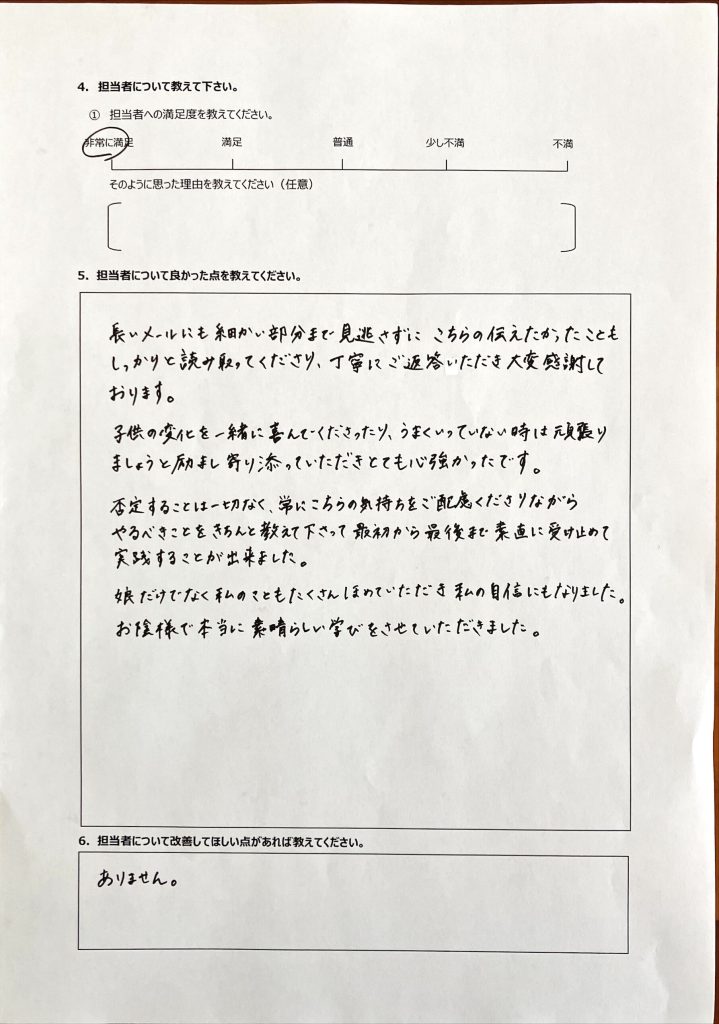 4．担当者について教えて下さい。
① 担当者への満足度を教えてください。
非常に満足 満足 普通 少し不満 不満
そのように思った理由を教えてください（任意）
5．担当者について良かった点を教えてください。
長いメールにも細かい部分まで見逃さずに こちらの伝えたかったことも
しっかりと読み取ってくださり、丁寧にご返答いただき大変感謝して
おります。
子供の変化を一緒に喜んでくださったり、うまくいっていない時は頑張り
ましょうと励まし寄り添っていただきとても心強かったです。
否定することは一切なく、常にこちらの気持ちをご配慮くださりながら
やるべきことをきちんと教えて下さって最初から最後まで素直に受け止めて
実践することが出来ました。
娘だけでなく私のこともたくさんほめていただき私の自信にもなりました。
お陰様で本当に素晴らしい学びをさせていただきました。
6．担当者について改善してほしい点があれば教えてください。
ありません。